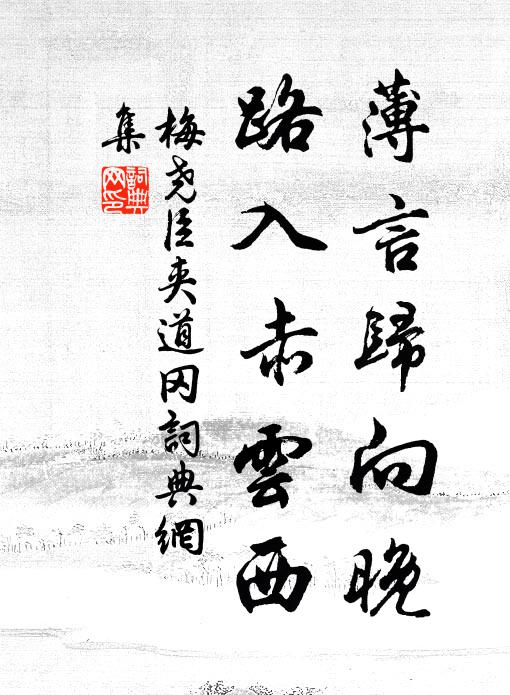 薄言歸向晚
路入赤雲西
梅堯臣夾道冈詞典網
集
詞典
网印